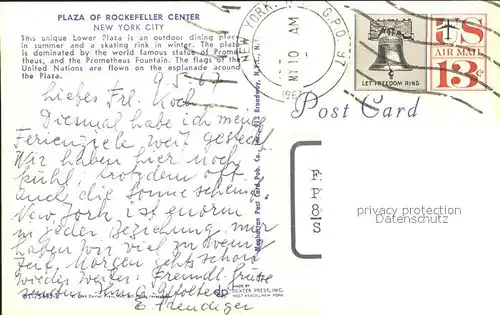 PLAZA OF ROCKEFELLER CENTER
NEW YORK CITY
This unique Lower Plaza is an outdoor dining place
in summer and a skating rink in winter. The plaza
is dominated by the world famous statue of Prome-
theus, and the Prometheus Fountain. The flags of the
United Nations are flown on the esplanade around
the Plaza.
9.5.67
Liebes Frl. Koch
Diesmal habe ich meine
Ferienziele weit gesteckt
Wir haben hier noch
kühl, trotzdem oft
auch die Sonne scheint.
New York ist enorm
in jeder Beziehung, nur
haben wir viel zu wenig
Zeit, Morgen gehts schon
wieder weiter. Freundl. Grüsse
senden Ihnen
E. Freudiger
DT-75495-B
MADE BY
DEXTER PRESS, INC.
WEST NYACK, NEW YORK
Manhattan Post Card Pub. Co., Inc., 913 Broadway, N.Y.C., N.Y.
NEW YORK, N.Y. G.P.O.
10 AM
1967
LET FREEDOM RING
US
AIR MAIL
13¢
Post Card
provided by
www.oldthing.com
Copyright protected